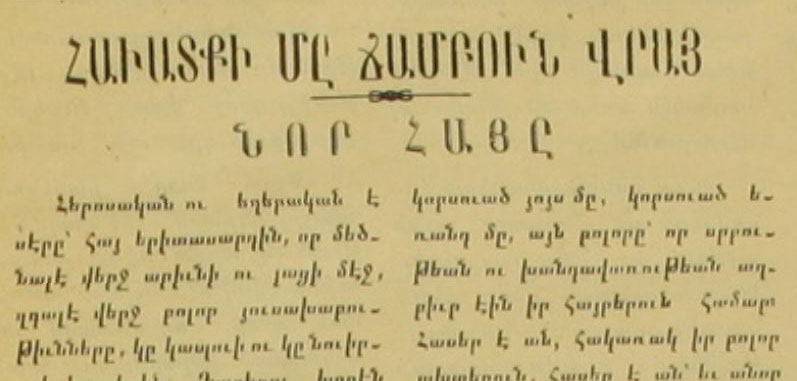 ՀԱՒԱՏՔԻ ՄԸ ՃԱՄԲՈՒՆ ՎՐԱՅ
ՆՈՐ ՀԱՅԸ
Հերոսական ու եղերական է
սէրը՝ հայ երիտասարդին, որ մեծ-
նալէ վերջ արիւնի ու լացի մէջ,
դդալէ վերջ բոլոր յուսախաբու-
թիւնները, կը կառչի ու կը նուիր-
կորսուած յոյս մը, կորսուած ե-
ռանդ մը, այն բոլորը՝ որ սրբու-
թեան ու խանդավառութեան աղ-
բիւր էին իր հայրերուն համար։
Հասեր է ան, հակառակ իր բոլոր
ախտերուն, Հասեր է ան՝ եւ անոր